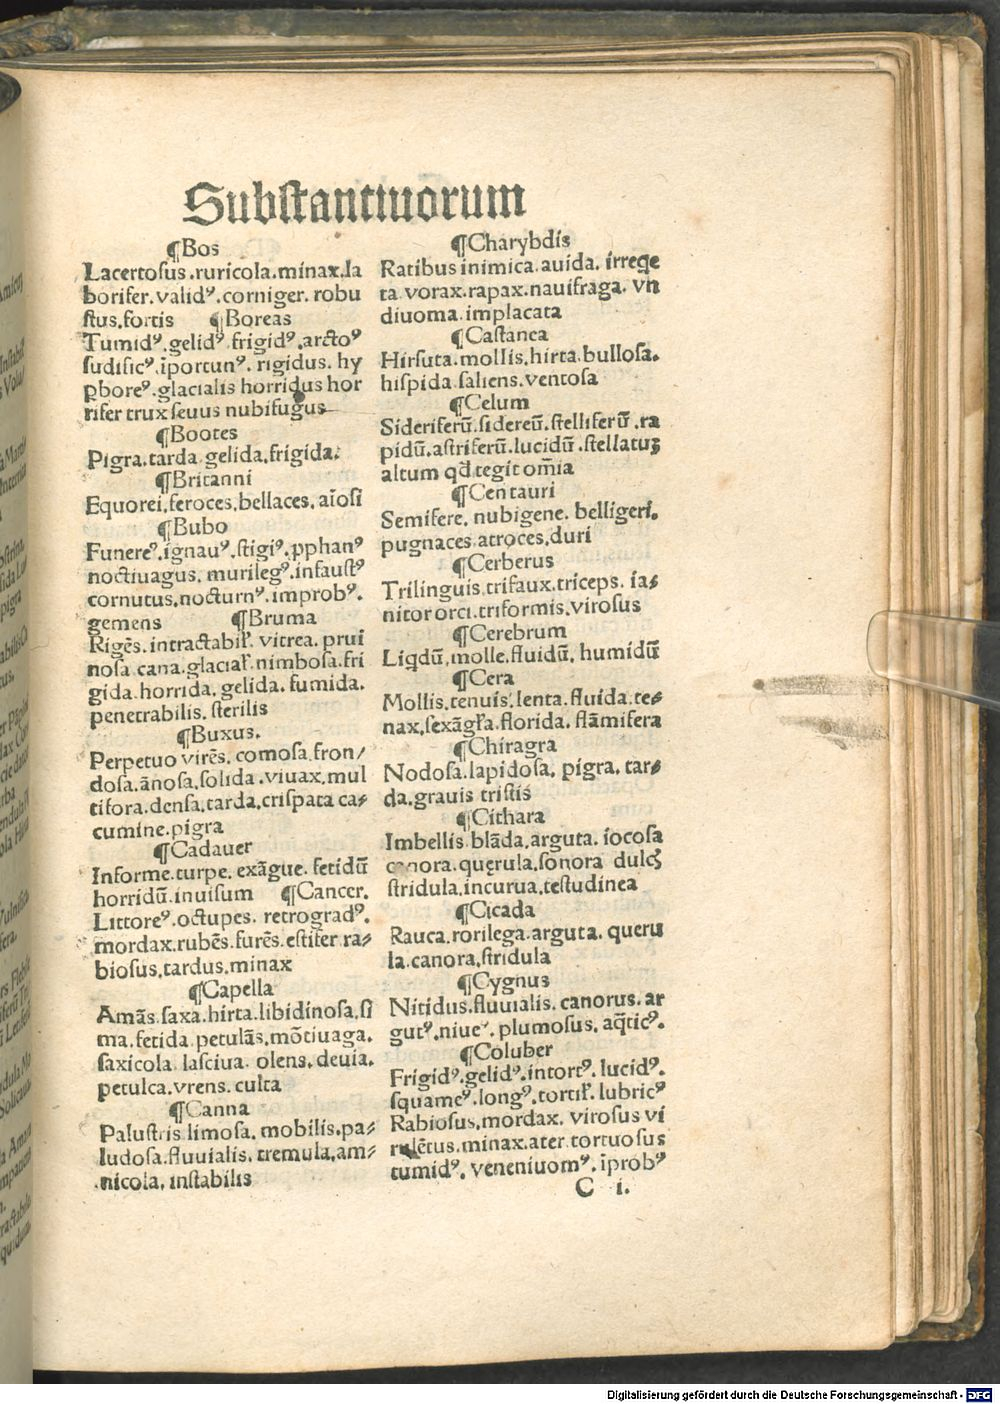 Substantiuorum
¶Bos
Lacertosus.ruricola.minax.la
borifer.validꝰ.corniger. robu
stus.fortis ¶Boreas
Tumidꝰ.gelidꝰ.frigidꝰ.arctoꝰ
sudificꝰ.īportunꝰ. rigidus. hy
ꝑboreꝰ.glacialis horridus hor
rifer trux seuus nubifugus
¶Bootes
Pigra.tarda gelida.frigida.
¶Britanni
Equorei.feroces.bellaces. aīosi
¶Bubo
Funereꝰ.ignauꝰ.stigiꝰ.ꝓphanꝰ
noctiuagus. murilegꝰ.infaustꝰ
cornutus.nocturnꝰ.improbꝰ.
gemens ¶Bruma
Rigēs. intractabił. vitrea. prui
nosa cana.glaciał.nimbosa.fri
gida.horrida. gelida. fumida.
penetrabilis. sterilis
¶Buxus.
Perpetuo virēs. comosa.fron/
dosa.ānosa.solida.viuax.mul
tifora.densa.tarda.crispata ca⸗
cumine.pigra
¶Cadauer
Informe.turpe. exāgue. fetidū
horridū.inuisum ¶Cancer.
Littoreꝰ.octupes. retrogradꝰ.
mordax.rubēs.furēs.estifer ra⸗
biosus.tardus.minax
¶Capella
Amās.saxa.hirta.libidinosa.si
ma.fetida petulās.mōtiuaga.
saxicola lasciua. olens. deuia.
petulca.vrens. culta
¶Canna
Palustris limosa. mobilis.pa⸗
ludosa.fluuialis. tremula.am⸗
nicola. instabilis
¶Charybdis
Ratibus inimica. auida. irreqe
ta vorax.rapax.nauifraga. vn
diuoma. implacata
¶Castanea
Hirsuta.mollis.hirta.bullosa.
hispida.saliens.ventosa
¶Celum
Sideriferū.sidereū.stelliferū.ra
pidū.astriferū.lucidū.stellatuʒ
altum qd tegit om̄ia
¶Centauri
Semifere. nubigene. belligeri.
pugnaces atroces.duri
¶Cerberus
Trilinguis.trifaux.triceps. ia⸗
nitor orci.triformis.virosus
¶Cerebrum
Liqdū.molle.fluidū. humidū
¶Cera
Mollis.tenuis.lenta.fluida.te⸗
nax.sexāgła.florida.flāmifera
¶Chiragra
Nodosa.lapidosa. pigra. tar⸗
da.grauis tristis
¶Cithara
Imbellis blāda.arguta. iocosa
canora.querula.sonora dulcꝭ
stridula.incurua.testudinea
¶Cicada
Rauca.rorilega.arguta. queru
la.canora.stridula
¶Cygnus
Nitidus.fluuialis. canorus. ar
gutꝰ.niueꝰ. plumosus. aq̄ticꝰ.
¶Coluber
Frigidꝰ.gelidꝰ.intortꝰ.lucidꝰ.
squameꝰ.longꝰ.tortił.lubricꝰ
Rabiosus.mordax. virosus vi
rulētus.minax.ater tortuosus
tumidꝰ. veneniuomꝰ. īprobꝰ
C i.
Digitalisierung gefördert durch die Deutsche Forschungsgemeinschaft - DFG